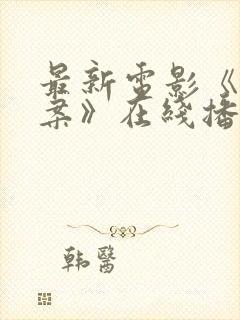 最新电影《
案》在线播
韩医